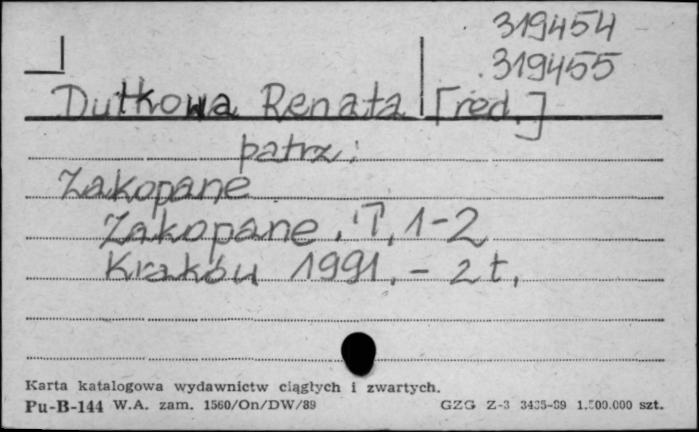 319454
319455
Dutkowa Renata [red.]
patrz:
Zakopane
Zakopane. T. 1-2
Kraków 1991. - 2 t.
Karta katalogowa wydawnictw ciągłych i zwartych.
Pu-B-144 W.A. zam. 1560/On/DW/89 GZG Z-3 3435-89 1.500.000 szt.